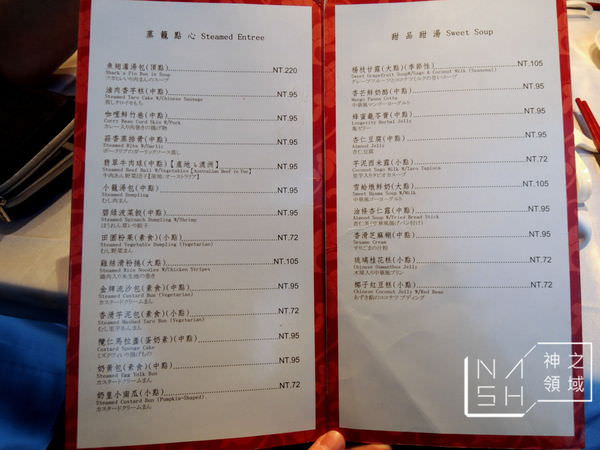 蒸籠點心 Steamed Entree
魚翅灌湯包(頂點) NT.220
Shark's Fin Bun in Soup
滷肉香芋糕(中點) NT.95
Steamed Taro Cake W/Chinese Sausage
咖哩鮮竹卷(中點) NT.95
Curry Bean Curd Skin W/Pork
蒜香蒸排骨(中點) NT.95
Steamed Ribs W/Garlic
翡翠牛肉球(中點)【產地:澳洲】 NT.95
Steamed Beef Ball W/Vegetables【Australian Beef in Use】
小籠湯包(中點) NT.95
Steamed Dumpling
碧綠波菜餃(中點) NT.95
Steamed Spinach Dumpling W/Shrimp
田園粉果(素食)(小點) NT.72
Steamed Vegetable Dumpling (Vegetarian)
雞絲滑粉捲(大點) NT.105
Steamed Rice Noodles W/Chicken Stripes
金牌流沙包(素食)(中點) NT.95
Steamed Custard Bun (Vegetarian)
カスタードクリームまん
香滑芋泥包(素食)(小點) NT.72
Steamed Mashed Taro Bun (Vegetarian)
欖仁馬拉盞(蛋奶素)(中點) NT.95
Custard Sponge Cake
奶黃包(素食)(中點) NT.95
Steamed Egg Yolk Bun
カスタードクリームまん
奶皇小南瓜(小點) NT.72
Steamed Custard Bun (Pumpkin-Shaped)
カスタードクリームまん
甜品甜湯 Sweet Soup
楊枝甘露(大點)(季節性) NT.105
Sweet Grapefruit Soup W/Sago & Coconut Milk (Seasonal)
香芒鮮奶酪(中點) NT.95
Mango Panna Cotta
蜂蜜龜苓膏(中點) NT.95
Longevity Herbal Jelly
亀ゼリー
杏仁豆腐(中點) NT.95
Almond Jelly
杏仁豆腐
芋泥西米露(小點) NT.72
Coconut Sago Milk W/Taro Tapioca
雪蛤燉鮮奶(大點) NT.105
Sweet Hasma Soup W/Milk
油條杏仁露(中點) NT.95
Almond Soup W/Fried Bread Stick
香滑芝麻糊(中點) NT.95
Sesame Cream
琉璃桂花糕(小點) NT.72
Chinese Osmanthus Jelly
椰子紅豆糕(小點) NT.72
Chinese Coconut Jelly W/Red Bean
NASH 神之領域